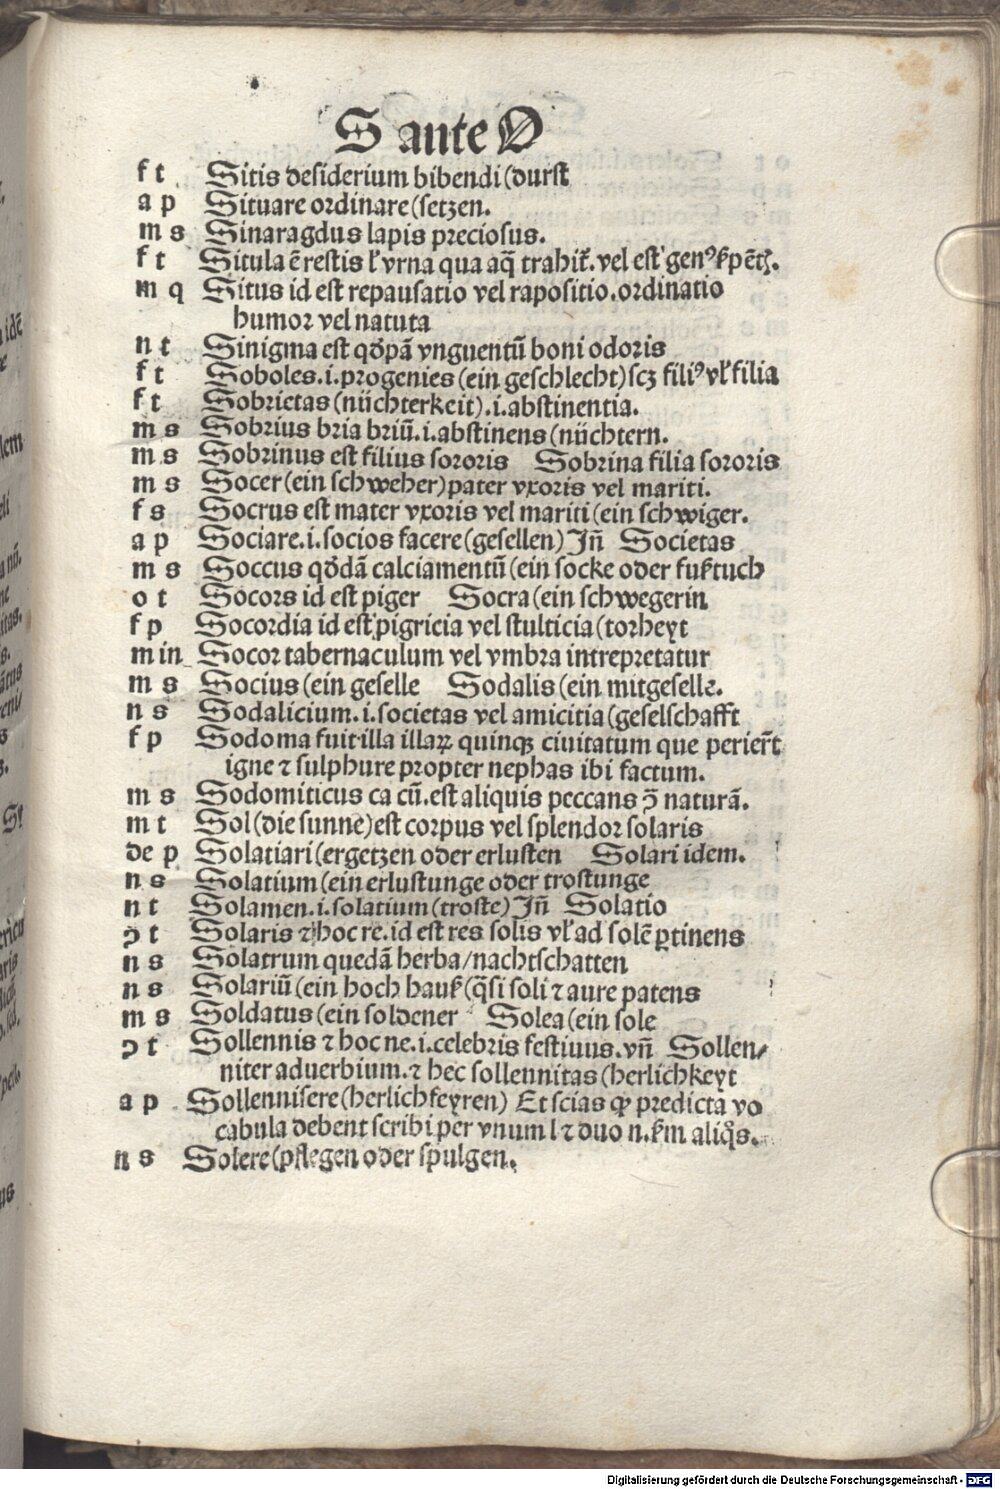 S ante O
f t Sitis desiderium bibendi (durst
a p Situare ordinare (setzen.
m s Sinaragdus lapis preciosus.
f t Situla ē restis ł vrna qua aq̄ trahit᷑. vel est genꝰ
m q Situs id est repausatio vel rapositio. ordinatio
humor vel natuta
n t Sinigma est qd̓pā vnguentū boni odoris
f t Soboles .i. progenies (ein geschlecht) scꝫ filiꝰ vł filia
f t Sobrietas (nüchterkeit) .i. abstinentia.
m s Sobrius bria briū .i. abstinens (nüchtern.
m s Sobrinus est filius sororis Sobrina filia sororis
m s Socer (ein schweher) pater vxoris vel mariti.
f s Socrus est mater vxoris vel mariti (ein schwiger.
a p Sociare .i. socios facere (gesellen) Jn̄ Societas
m s Soccus qd̓dā calciamentū (ein socke oder fußtuch
o t Socors id est piger Socra (ein schwegerin
f p Socordia id est pigricia vel stulticia (torheyt
m in Socor tabernaculum vel vmbra intrepretatur
m s Socius (ein geselle Sodalis (ein mitgeselle.
n s Sodalicium .i. societas vel amicitia (geselschafft
f p Sodoma fuit illa illaꝝ quinqꝫ ciuitatum que perier̄t
igne ⁊ sulphure propter nephas ibi factum.
m s Sodomiticus ca cū. est aliquis peccans ꝯ̄ naturā.
m t Sol (die sunne) est corpus vel splendor solaris
de p Solatiari (ergetzen oder erlusten Solari idem.
n s Solatium (ein erlustunge oder trostunge
n t Solamen .i. solatium (troste) Jn̄ Solatio
ꝯ t Solaris ⁊ hoc re. id est res solis vł ad solē ꝑtinens
n s Solatrum quedā herba / nachtschatten
n s Solariū (ein hoch hauß (q̄si soli ⁊ aure patens
m s Soldatus (ein soldener Solea (ein sole
ꝯ t Sollennis ⁊ hoc ne .i. celebris festiuus. vn̄ Sollen/
niter aduerbium. ⁊ hec sollennitas (herlichkeyt
a p Sollennisere (herlichfeyren) Et scias ꝙ predicta vo
cabula debent scribi per vnum l ⁊ duo n. ßm aliq̊s.
n s Solere (pflegen oder spulgen.
Digitalisierung gefördert durch die Deutsche Forschungsgemeinschaft - DFG